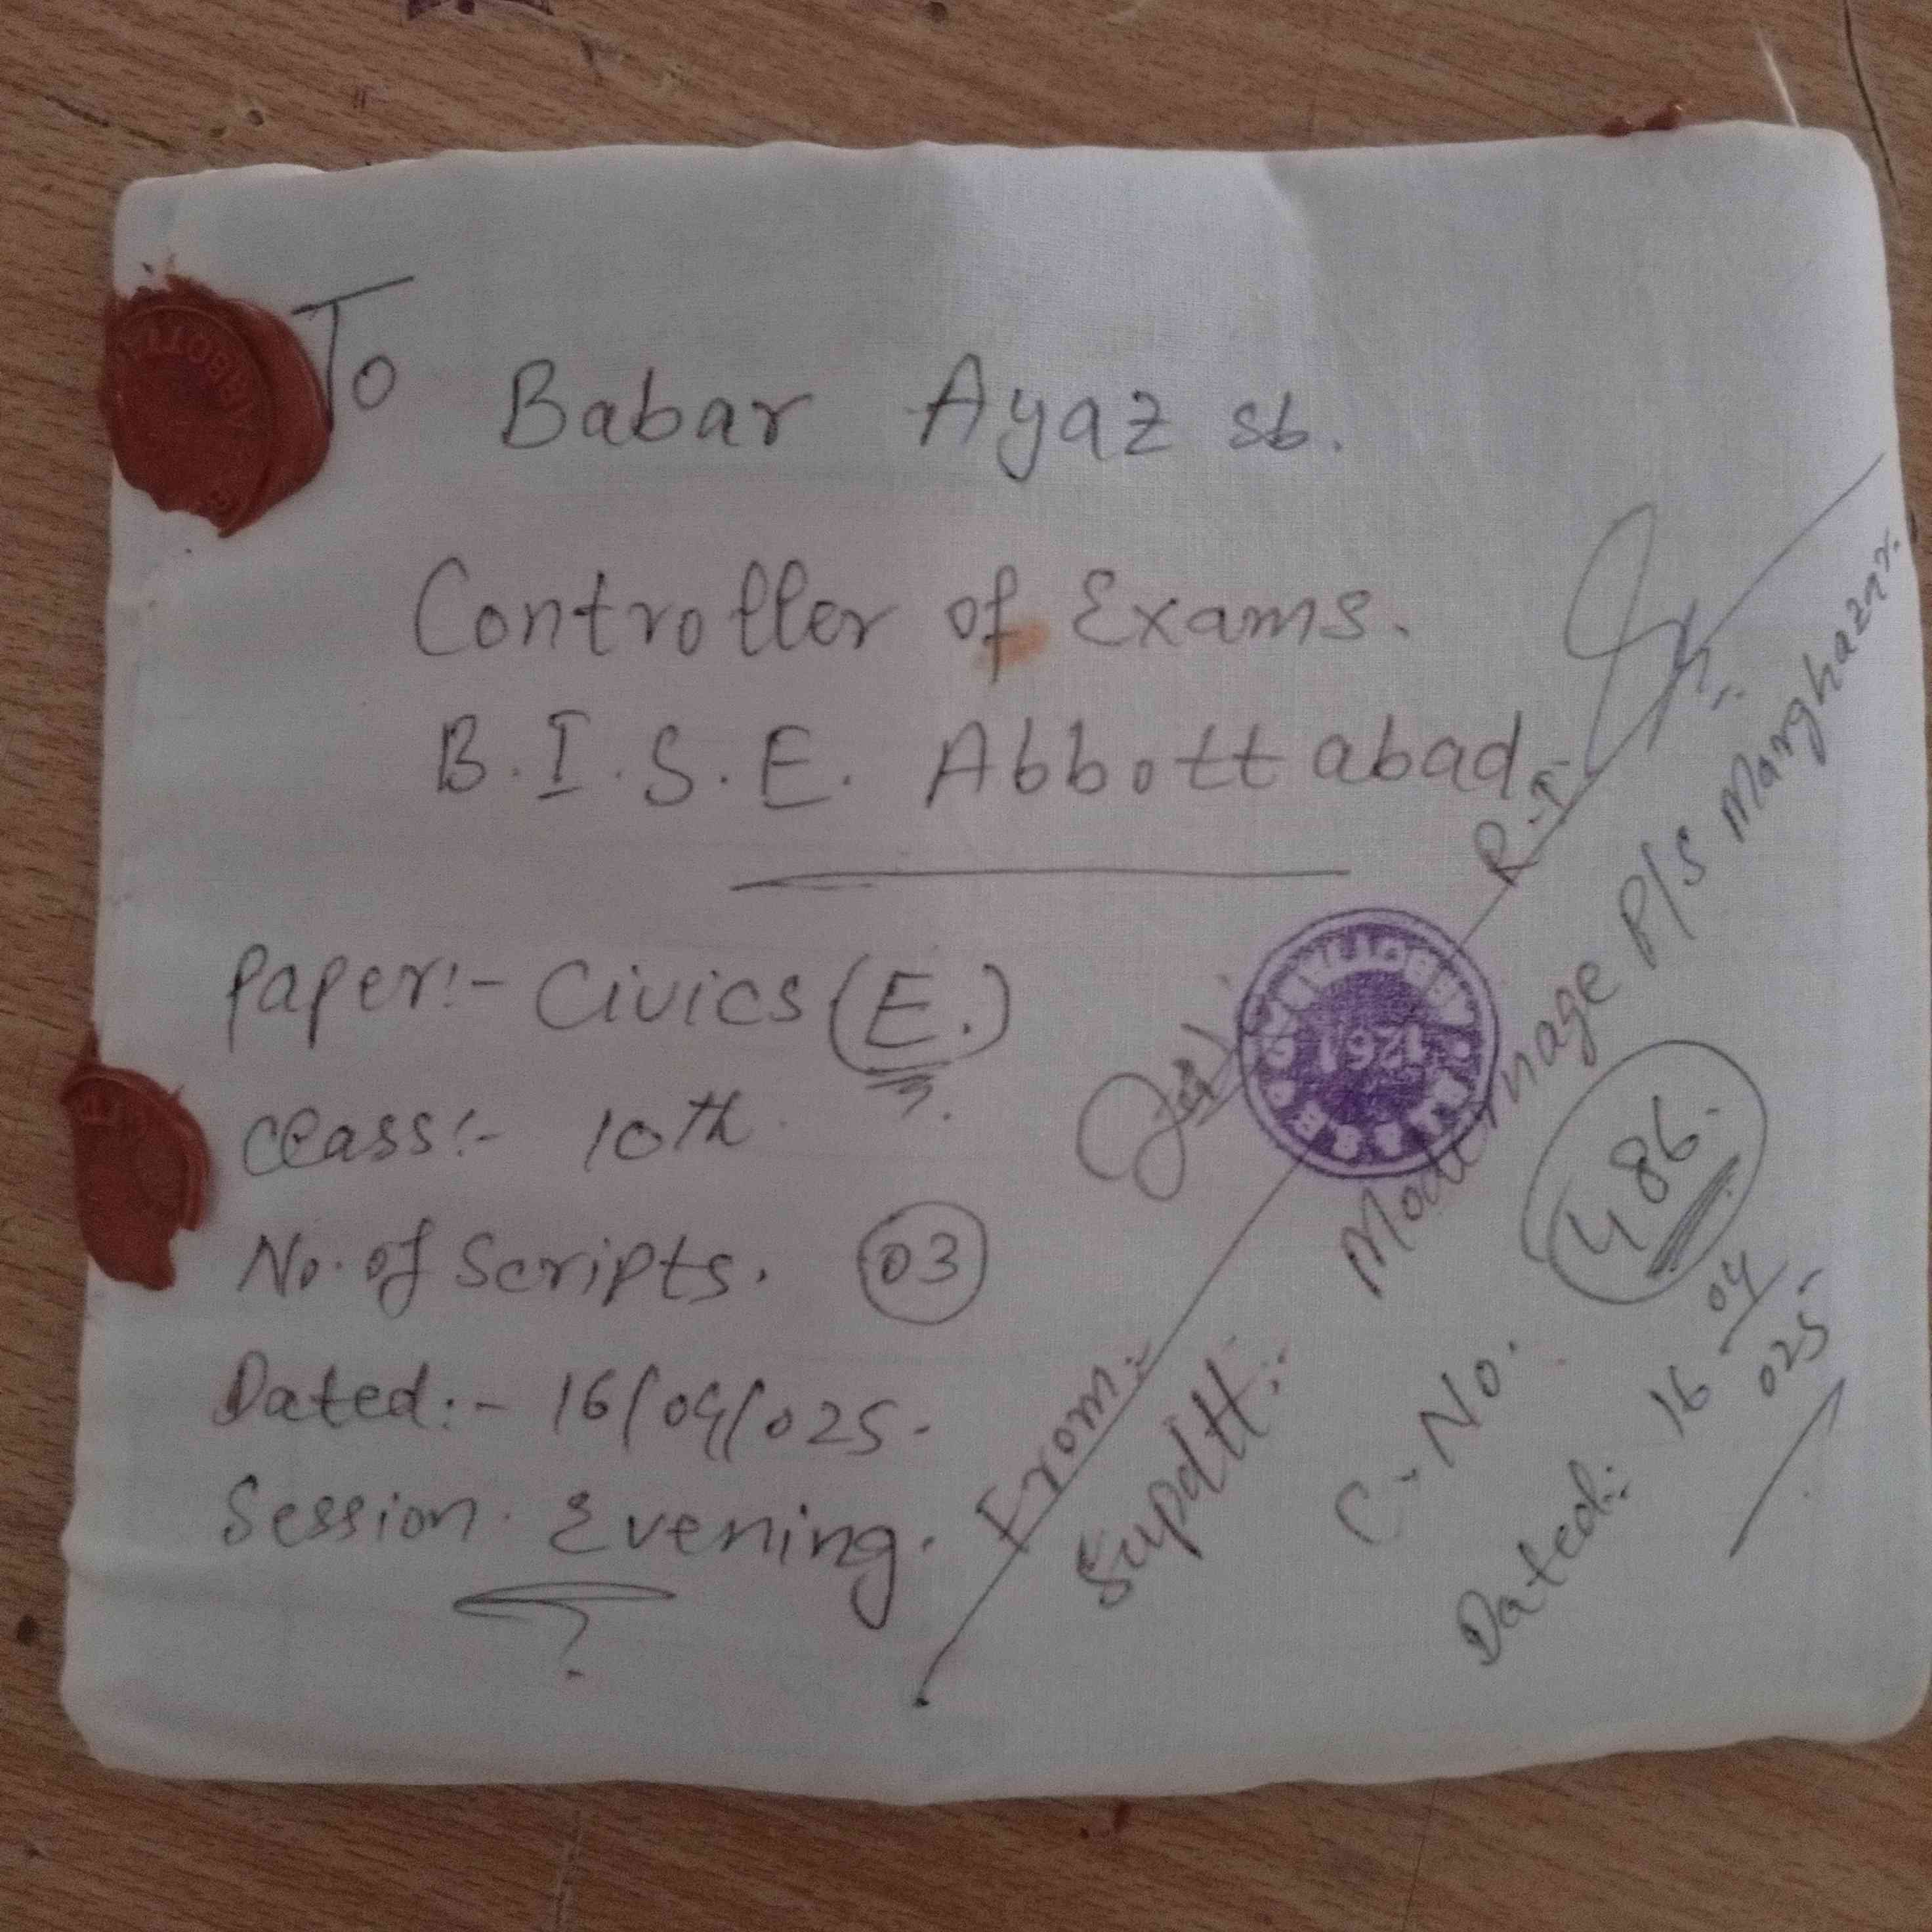 To
Babar Ayaz sb.
Controller of Exams.
B.I.S.E. Abbottabad.
Paper:- Civics (E.)
Class:- 10th
No. of Scripts. 03
Dated:- 16/04/025.
Session. Evening.
R.I.
1261
From:-
Supdtt:- Modernage P/S Marghazar.
C-No. 486.
Dated:- 16/04/025